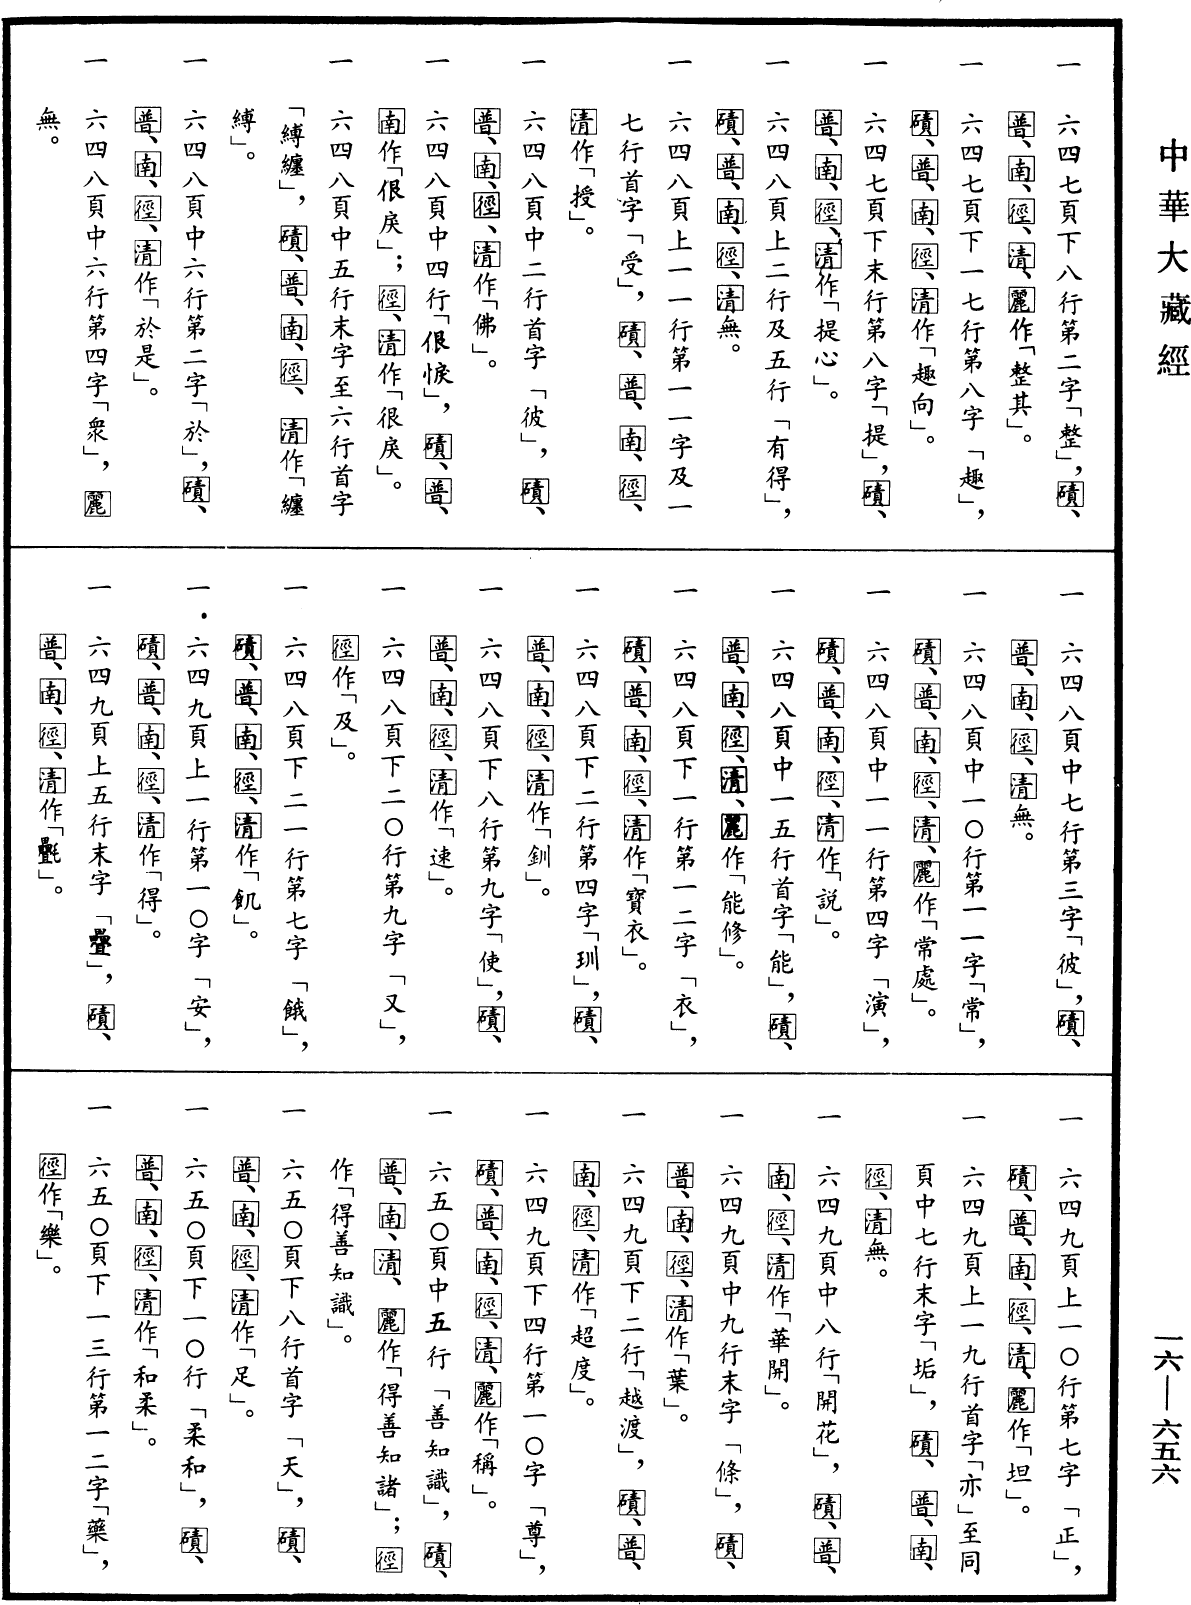 中華大藏經
一 六四七頁下八行第二字「整」，磧、
普、南、徑、清、麗作「整其」。
一 六四七頁下一七行第八字「趣」，
磧、普、南、徑、清作「趣向」。
一 六四七頁下末行第八字「提」，磧、
普、南、徑、清作「提心」。
一 六四八頁上二行及五行「有得」，
磧、普、南、徑、清無。
一 六四八頁上一一行第一一字及一
七行首字「受」，磧、普、南、徑、
清作「授」。
一 六四八頁中二行首字「彼」，磧、
普、南、徑、清作「佛」。
一 六四八頁中四行「佷悷」，磧、普、
南作「佷戾」；徑、清作「很戾」。
一 六四八頁中五行末字至六行首字
「縛纏」，磧、普、南、徑、清作「纏
縛」。
一 六四八頁中六行第二字「於」，磧、
普、南、徑、清作「於是」。
一 六四八頁中六行第四字「衆」，麗
無。
一 六四八頁中七行第三字「彼」，磧、
普、南、徑、清無。
一 六四八頁中一〇行第一一字「常」，
磧、普、南、徑、清、麗作「常處」。
一 六四八頁中一一行第四字「演」，
磧、普、南、徑、清作「説」。
一 六四八頁中一五行首字「能」，磧、
普、南、徑、清、麗作「能修」。
一 六四八頁下一行第一二字「衣」，
磧、普、南、徑、清作「寶衣」。
一 六四八頁下二行第四字「玔」，磧、
普、南、徑、清作「釧」。
一 六四八頁下八行第九字「使」，磧、
普、南、徑、清作「速」。
一 六四八頁下二〇行第九字「又」，
徑作「及」。
一 六四八頁下二一行第七字「餓」，
磧、普、南、徑、清作「飢」。
一 六四九頁上一行第一〇字「安」，
磧、普、南、徑、清作「得」。
一 六四九頁上五行末字「疊」，磧、
普、南、徑、清作「氎」。
一 六四九頁上一〇行第七字「正」，
磧、普、南、徑、清、麗作「坦」。
一 六四九頁上一九行首字「亦」至同
頁中七行末字「垢」，磧、普、南、
徑、清無。
一 六四九頁中八行「開花」，磧、普、
南、徑、清作「華開」。
一 六四九頁中九行末字「條」，磧、
普、南、徑、清作「葉」。
一 六四九頁下二行「越渡」，磧、普、
南、徑、清作「超度」。
一 六四九頁下四行第一〇字「尊」，
磧、普、南、徑、清、麗作「稱」。
一 六五〇頁中五行「善知識」，磧、
普、南、清、麗作「得善知諸」；徑
作「得善知識」。
一 六五〇頁下八行首字「天」，磧、
普、南、徑、清作「足」。
一 六五〇頁下一〇行「柔和」，磧、
普、南、徑、清作「和柔」。
一 六五〇頁下一三行第一二字「藥」，
徑作「樂」。
一六—六五六